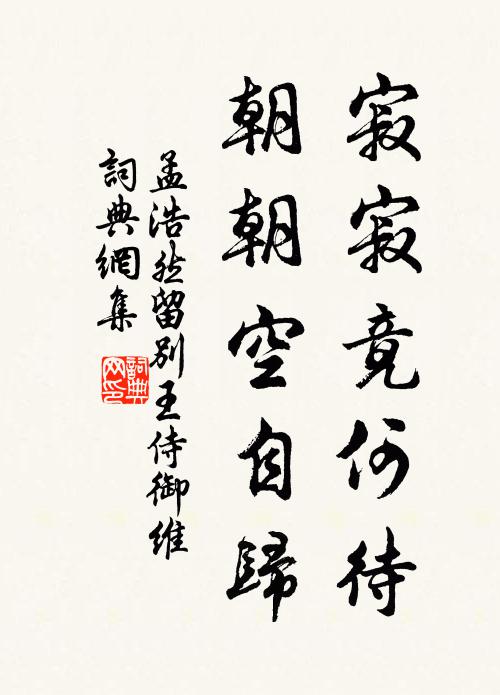 寂寂竟何待
朝朝空自歸
孟浩然留別王侍御維
詞典網集
詞典网印